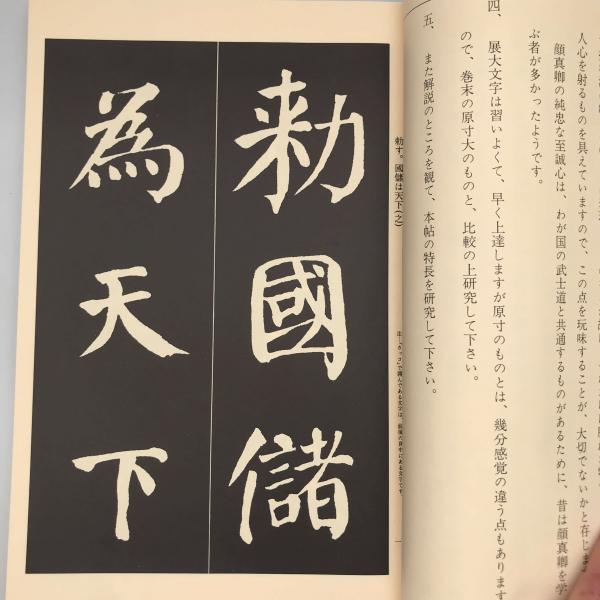 人心を射るものを具えていますので、この点を玩味することが、大切でないかと存じま
顔真卿の純忠な至誠心は、わが国の武士道と共通するものがあるために、昔は顔真卿を学
ぶ者が多かったようです。
四、展大文字は習いよくて、早く上達しますが原寸のものとは、幾分感覚の違う点もあります
ので、巻末の原寸大のものと、比較の上研究して下さい。
五、また解説のところを観て、本帖の特長を研究して下さい。
勅す。國儲は天下(之)
勅國儲
為天下